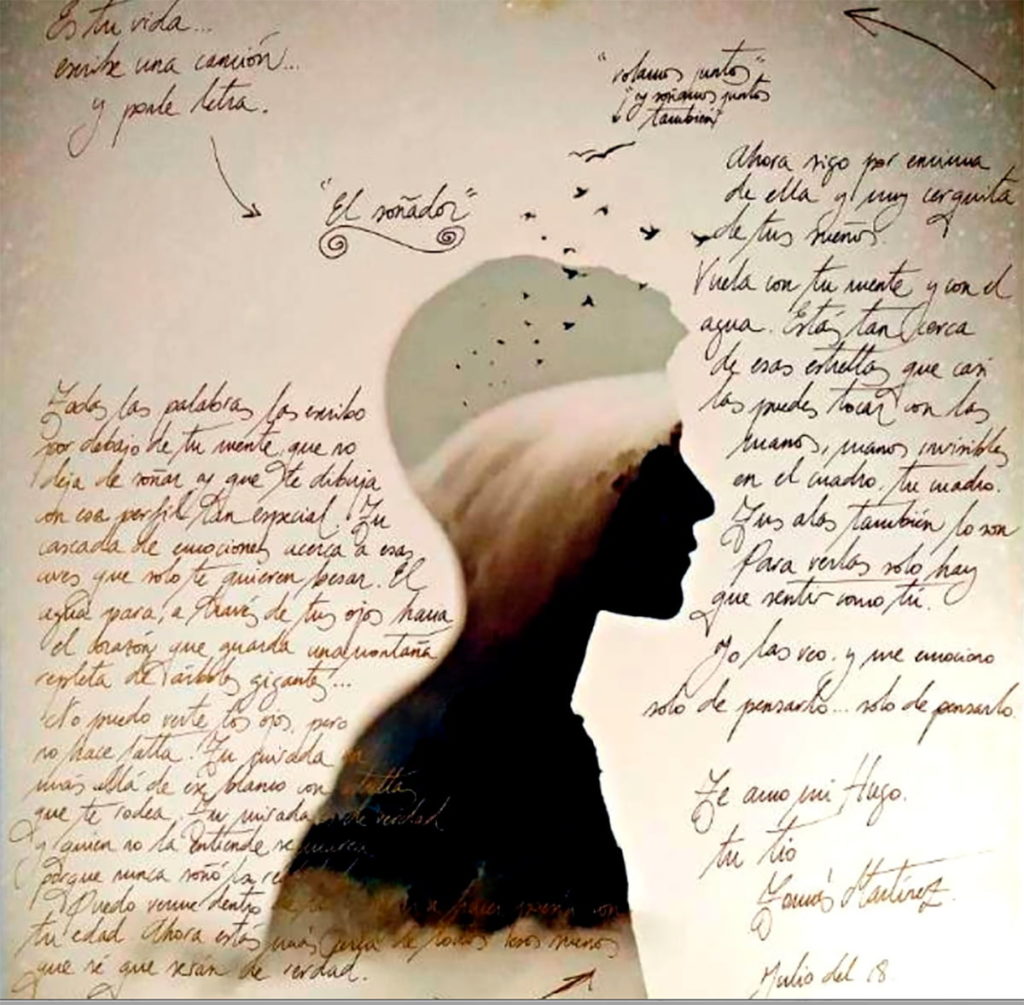 Es tu vida...
escribe una canción...
y ponle letra.
"El soñador"
"volamos juntos"
"y soñamos juntos
también"
Todas las palabras las escribo
por debajo de tu mente, que no
deja de soñar y que te dibuja
con ese perfil tan especial. Tu
cascada de emociones acerca a esas
aves que solo te quieren besar. El
agua para, a través de tus ojos hacia
el corazón, que guarda una montaña
repleta de árboles gigantes...
No puedo verte los ojos, pero
no hace falta. Tu mirada
más allá de ese blanco con estrellas
que te rodea. Tu mirada es de verdad
y quien no la entiende
porque nunca soñó
Puedo verme dentro
tu edad. Ahora estás más cerca de todos esos sueños
que sé que serán de verdad.
Ahora sigo por encima
de ella y muy cerquita
de tus sueños.
Vuela con tu mente y con el
agua. Estás tan cerca
de esas estrellas que casi
las puedes tocar con las
manos, manos invisibles
en el cuadro, tu cuadro.
Tus alas también lo son
Para verlas solo hay
que sentir como tú.
Yo las veo, y me emociono
solo de pensarlo... solo de pensarlo.
Te amo mi Hugo.
tu tío
Tomás Martínez.
Julio del 18